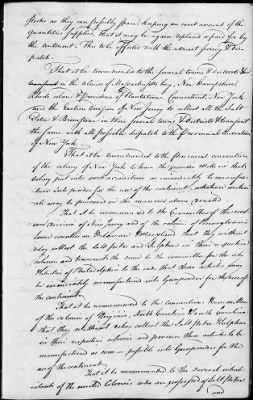 stores as they can possibly spare keeping an exact account of the
quantities supplied, that it may be again replaced or paid for by
the continent. This to be effected with the utmost secrecy & dis-
patch.
That it be recommended to the several towns & districts
in the colonies of Massachusetts bay, New hampshire
Rhode island & Providence Plantations, Connecticut, New York
and the eastern division of New Jersey to collect all the salt
Petre & Brimstone in their several towns & districts & transmit
the same with all possible dispatch to the Provincial Convention
of New York.
That it be recommended to the provincial convention
of the colony of New York to have the powder mills in that
colony put into such a condition as immediately to manufac-
ture into powder for the use of the continent, whatever materi-
als may be procured in the manner above directed
That it be recommended to the Committees of the west
ern division of New Jersey and of the colony of Pennsylvania
lower counties on Delaware & Maryland that they without
delay collect the salt petre and sulphur in their respective
colonies and transmit the same to the committee for the city
& liberties of Philadelphia to the end that those articles may
be immediately manufactured into Gunpowder for the use of
the continent.
That it be recommended to the convention & committees
of the colonies of Virginia, North Carolina & South Carolina
that they without delay collect the salt petre & sulphur
in their respective colonies and procure these articles to be
manufactured as soon as possible into Gunpowder for the use
of the continent.
That it be recommended to the several inhab-
itants of the united Colonies who are possessed of salt petre
and